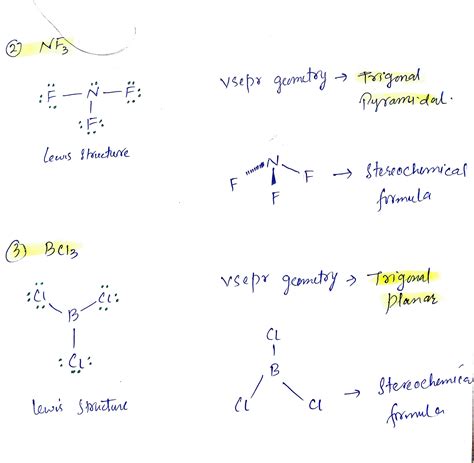 (2) NF₃
F — N — F
F
Lewis Structure
vsepr geometry → Trigonal
Pyramidal.
N
F F F → Stereochemical
formula
(3) BCl₃
Cl Cl
B
Cl
Lewis Structure
vsepr geometry → Trigonal
planar
Cl
B
Cl Cl → Stereochemica
formula